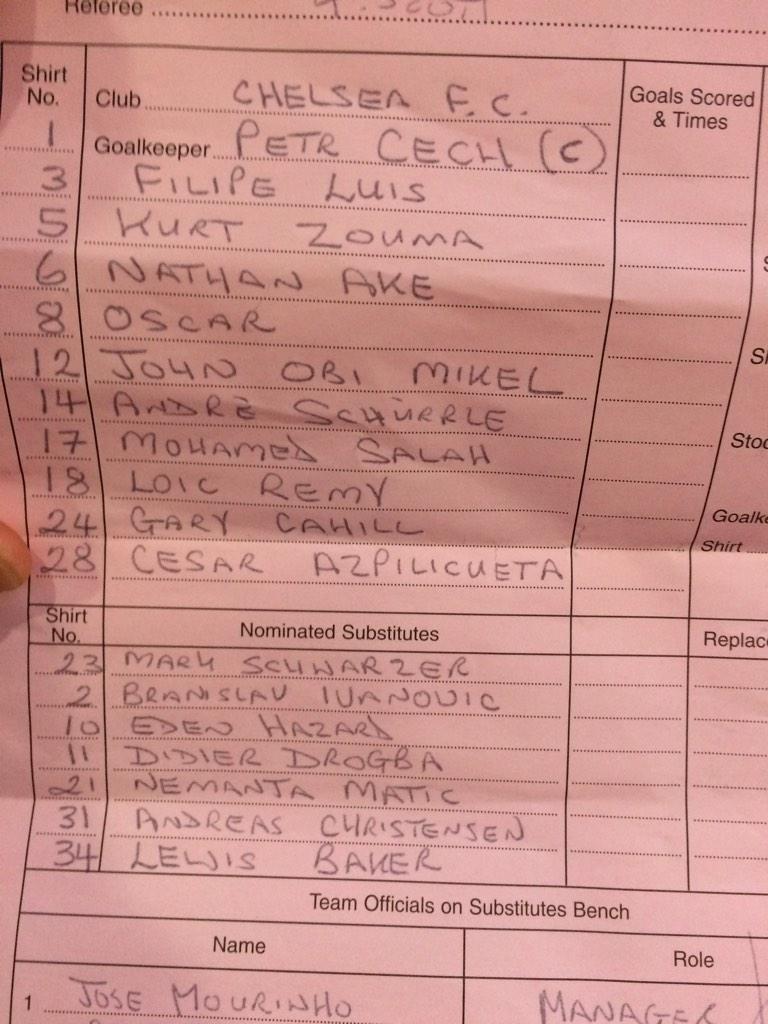 Referee
Shirt No. Club CHELSEA F.C. Goals Scored & Times
1 Goalkeeper PETR CECH (C)
3 FILIPE LUIS
5 KURT ZOUMA
6 NATHAN AKE
8 OSCAR
12 JOHN OBI MIKEL
14 ANDRÈ SCHÜRRLE
17 MOHAMED SALAH
18 LOIC REMY
24 GARY CAHILL
28 CESAR AZPILICUETA
Shirt
Shirt No. Nominated Substitutes
23 MARK SCHWARZER
2 BRANISLAV IVANOVIC
10 EDEN HAZARD
11 DIDIER DROGBA
21 NEMANTA MATIC
31 ANDREAS CHRISTENSEN
34 LEWIS BAKER
Team Officials on Substitutes Bench
Name Role
1 JOSE MOURINHO MANAGER